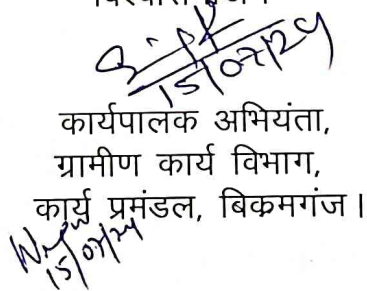 15/07/24
कार्यपालक अभियंता,
ग्रामीण कार्य विभाग,
कार्य प्रमंडल, बिक्रमगंज।
15/07/24